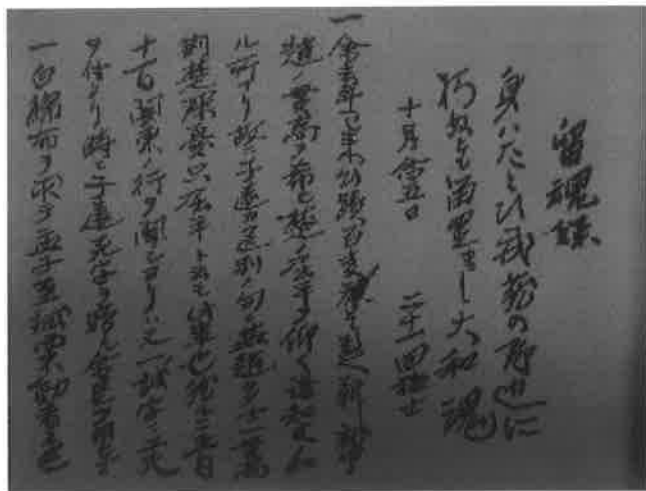 留魂録
身ハたとひ武蔵の野辺に
朽ぬとも留置まし大和魂
十月念五日 二十一回猛士
一余去年已来心蹟百変挙て数へ難し
趙ノ貫高ヲ希ヒ楚ノ屈平ヲ仰ク諸知友ノ
ル所ナリ故ニ子遠カ送別ノ句ニ燕趙多士一貫高
荊楚深憂只屈平ト云モ此事也然ルニ五月
十一日関東ノ行ヲ聞シヨリハ又一ノ誠字ニ工夫
ヲ付タリ時ニ子遠死字ヲ贈ル余是ヲ用ヒス
一白綿布ヲ求テ孟子至誠而不動者未